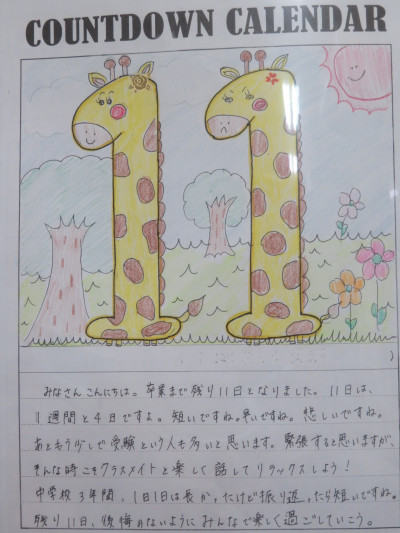 COUNTDOWN CALENDAR
)
みなさんこんにちは。卒業まで残り11日となりました。11日は、
1週間と4日ですよ。短いですね。早いですね。悲しいですね。
あともう少しで受験という人も多いと思います。緊張すると思いますが、
そんな時こそクラスメイトと楽しく話してリラックスしよう!
中学校3年間、1日1日は長かったけど振り返ったら短いですね。
残り11日、後悔のないようにみんなで楽しく過ごしていこう。